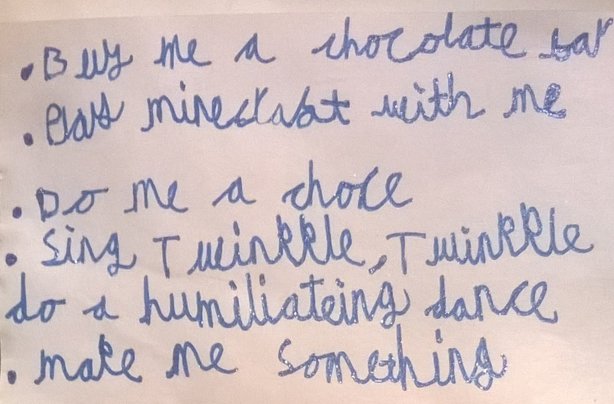 • Buy me a chocolate bar
• Play minecraft with me
• Do me a chore
• Sing Twinkkle, Twinkkle
do a humiliateing dance
• make me something